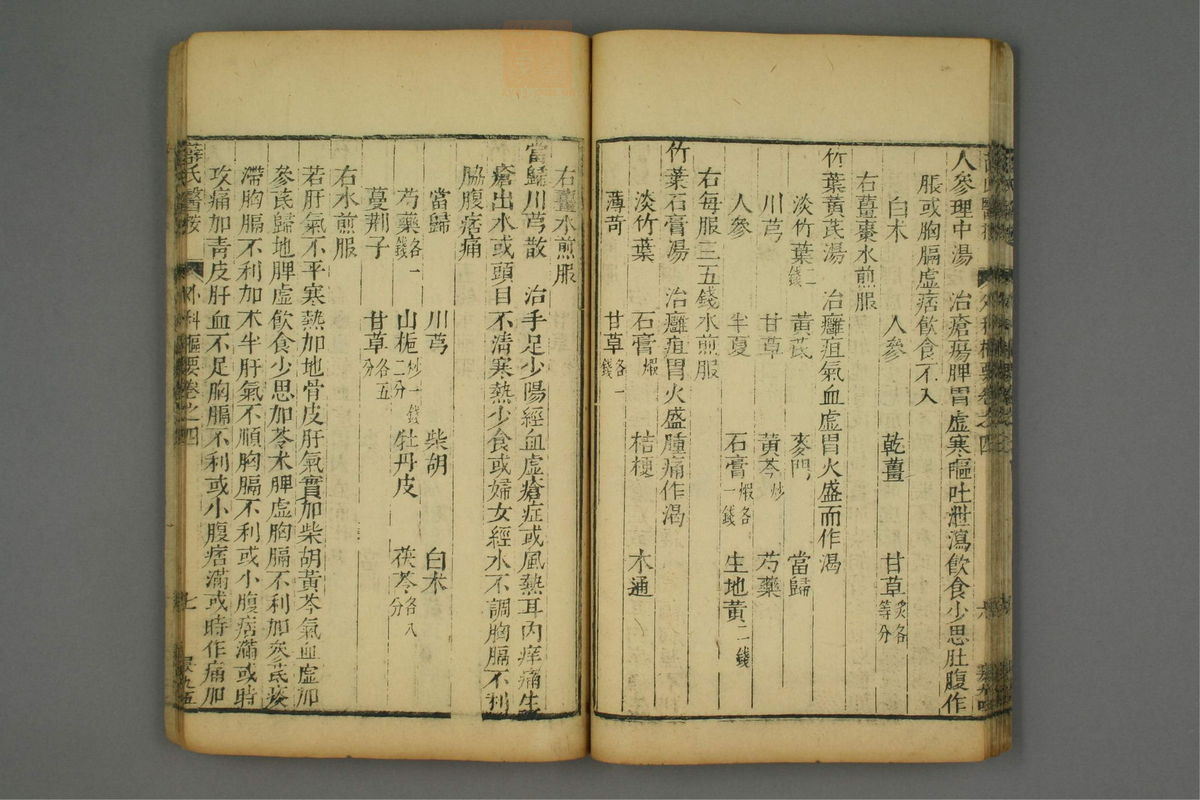 人參理中湯　治瘡瘍脾胃虛寒嘔吐泄瀉飲食少思肚腹作
脹或胸膈虛痞飲食不入
白朮　人參　乾薑　甘草炙各等分
右薑棗水煎服
竹葉黃芪湯　治癰疽氣血虛胃火盛而作渴
淡竹葉二錢　黃芪　麥門　當歸
川芎　甘草　黃芩炒　芍藥
人參　半夏　石膏煅各一錢　生地黃二錢
右每服三五錢水煎服
竹葉石膏湯　治癰疽胃火盛腫痛作渴
淡竹葉　石膏煅　桔梗　木通
薄荷　甘草各一錢
右薑水煎服
當歸川芎散　治手足少陽經血虛瘡症或風熱耳內痒痛生
瘡出水或頭目不清寒熱少食或婦女經水不調胸膈不利
脇腹痞痛
當歸　川芎　柴胡　白朮
芍藥各一錢　山梔炒一錢二分　牡丹皮　茯苓各八分
蔓荆子　甘草各五分
右水煎服
若肝氣不平寒熱加地骨皮肝氣實加柴胡黃芩氣血虛加
參芪歸地脾虛飲食少思加苓朮脾虛胸膈不利加參芪痰
滯胸膈不利加朮半肝氣不順胸膈不利或小腹痞滿或時
攻痛加青皮肝血不足胸膈不利或小腹痞滿或時作痛加
薛氏醫按　外科樞要卷之四　七